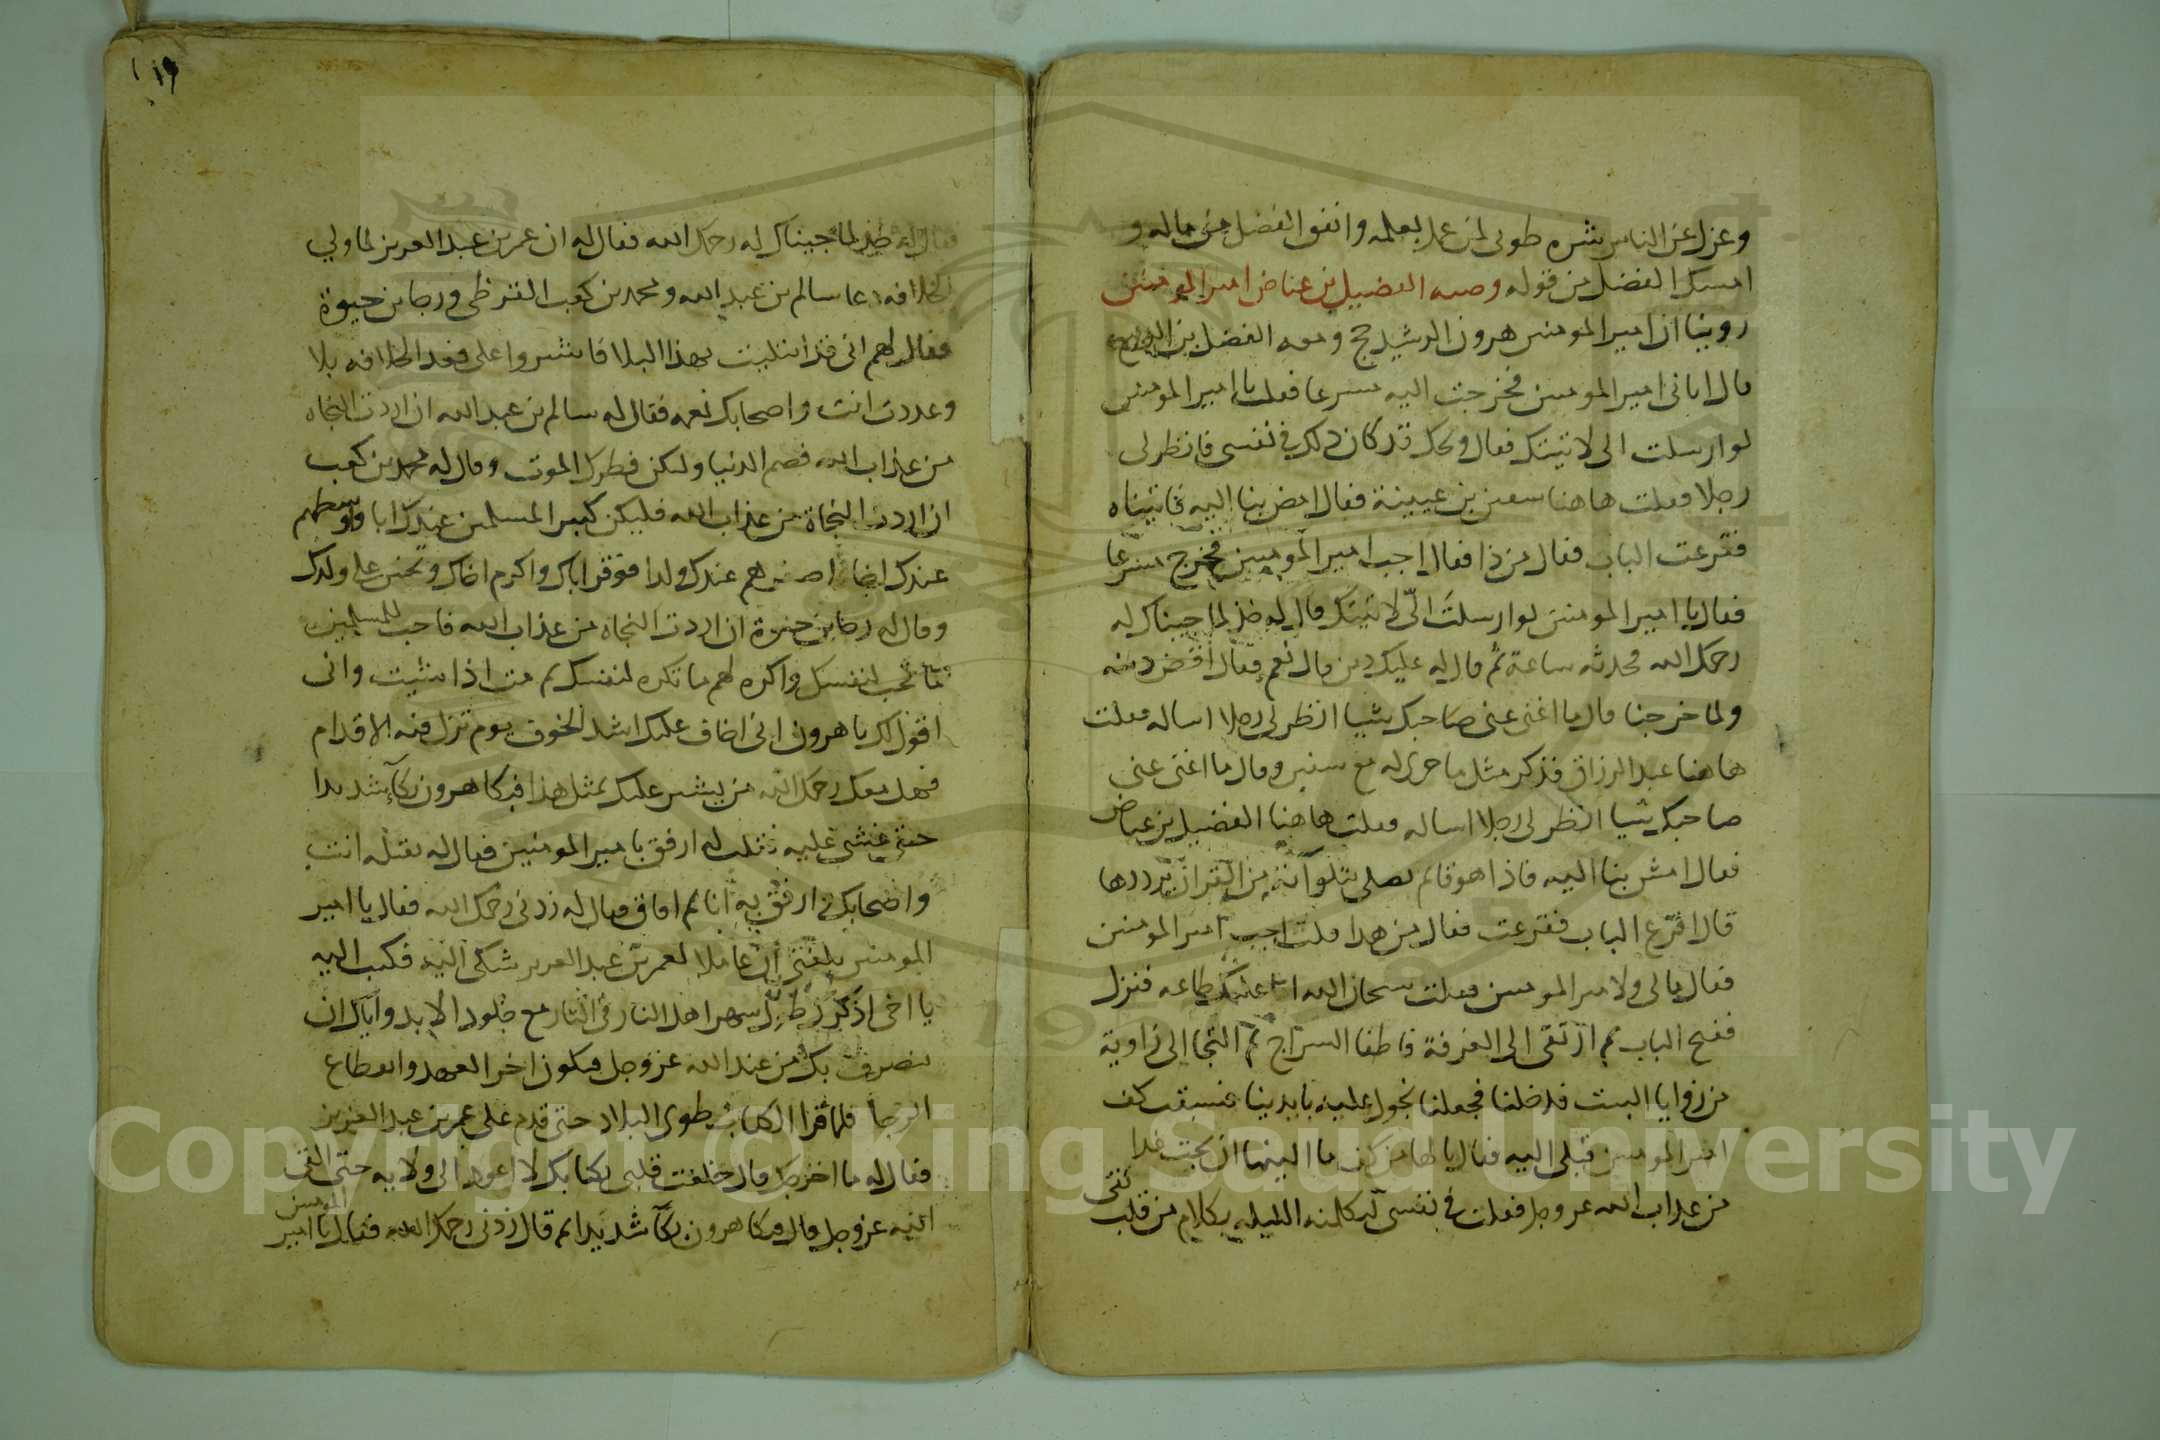 وعزل عن الناس شره طوبى لمن عمل بعلمه وانفق الفضل من ماله و
امسك الفضل من قوله وصيه الفضيل بن عياض امير المومنين
روينا ان امير المومنين هرون الرشيد حج ومعه الفضل بن الربيع
قال اتاني امير المومنين فخرجت اليه مسرعا فقلت يا امير المومنين
لو ارسلت الي لاتيتك فقال ويحك قد كان ذلك في نفسي فانظر لي
رجلا فقلت هاهنا سفين بن عيينة فقال امض بنا اليه فاتيناه
فقرعت الباب فقال من ذا فقال اجب امير المومنين فخرج مسرعا
فقال يا امير المومنين لو ارسلت الي لاتيتك قال له خذ لما جيناك له
رحمك الله فحدثه ساعة ثم قال له عليك دين قال نعم فقال اقض دينه
ولما خرجنا قال ما اغنى عني صاحبك شيا انظر لي رجلا اساله فقلت
هاهنا عبد الرزاق فذكر مثل ما جرى له مع سفين وقال ما اغنى عني
صاحبك شيا انظر لي رجلا اساله فقلت هاهنا الفضيل بن عياض
فقال امش بنا اليه فاذا هو قائم يصلي يتلو آية من القران يرددها
قال اقرع الباب فقرعت فقال من هذا قلت اجب امير المومنين
فقال مالي ولامير المومنين فقلت سبحان الله اما عليك طاعه فنزل
ففتح الباب ثم ارتقى الى الغرفة فاطفا السراج ثم التجا الى زاوية
من زوايا البيت فدخلنا فجعلنا نجول عليه بايدينا فسبقت كف
امير المومنين قبلي اليه فقال يا لها من كف ما الينها ان نجت غدا
من عذاب الله عز وجل فقلت في نفسي ليكلمنه الليله بكلام من قلب نقي
فقال له خذ لما جيناك له رحمك الله فقال له ان عمر بن عبد العزيز لما ولي
الخلافه دعا سالم بن عبد الله ومحمد بن كعب القرظي ورجا بن حيوة
فقال لهم اني قد ابتليت بهذا البلا فاشيروا علي فعد الخلافه بلا
وعددت انت واصحابك نعمه فقال له سالم بن عبد الله ان اردت النجاه
من عذاب الله فصم الدنيا وليكن فطرك الموت وقال له محمد بن كعب
ان اردت النجاة من عذاب الله فليكن كبير المسلمين عندك ابا واوسطهم
عندك اخا واصغرهم عندك ولدا فوقر اباك واكرم اخاك وتحنن على ولدك
وقال له رجا بن حيوة ان اردت النجاه من عذاب الله فاحب للمسلمين
ما تحب لنفسك واكره لهم ما تكره لنفسك ثم مت اذا شئت واني
اقول لك يا هرون اني اخاف عليك اشد الخوف يوم تزل فيه الاقدام
فهل معك رحمك الله من يشير عليك بمثل هذا فبكا هرون بكآ شديدا
حتى غشي عليه فقلت له ارفق بامير المومنين فقال له تقتله انت
واصحابك وارفق به انا ثم افاق فقال له زدني رحمك الله فقال يا امير
المومنين بلغني ان عاملا لعمر بن عبد العزيز شكى اليه فكتب اليه
يا اخي اذكر طول سهر اهل النار في النار مع خلود الابد واياك ان
ينصرف بك من عند الله عز وجل فيكون اخر العهد وانقطاع
الرجا فلما قرا الكتاب طوى البلاد حتى قدم على عمر بن عبد العزيز
فقال له ما اخرجك قال خلعت قلبي بكتابك لا اعود الى ولايه حتى القى
الله عز وجل قال فبكا هرون بكآ شديدا ثم قال زدني رحمك الله فقال يا امير المومنين
١٩
Copyright © King Saud University
1957